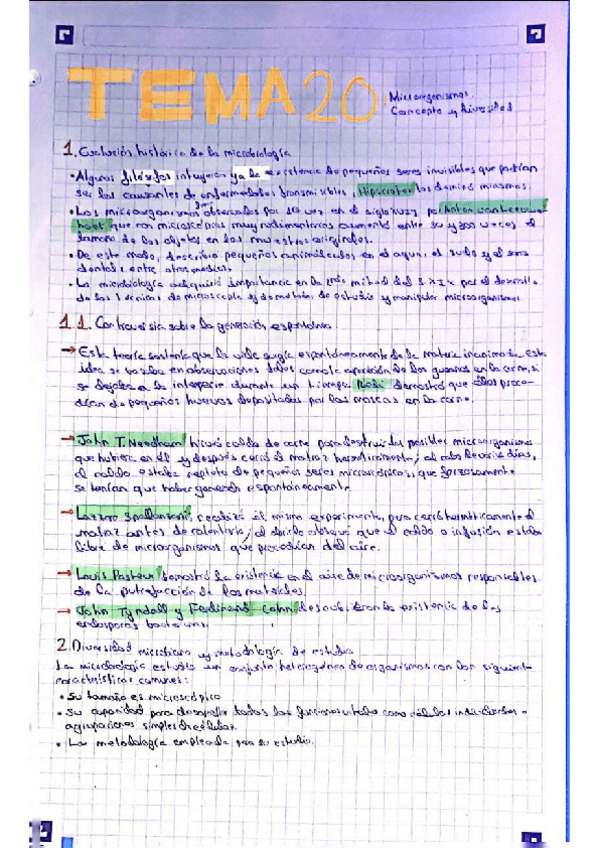 TEMA 20:
Microorganismos.
Concepto y diversidad
1. Evolución histórica de la microbiología
• Algunos filósofos intuyeron ya la existencia de pequeños seres invisibles que podrían
ser los causantes de enfermedades transmisibles, Hipócrates los denominó miasmas.
• Los microorganismos son observados por 1a vez en el siglo XVII por Anton van Leeuwen-
hoek que con microscopios muy rudimentarios aumentó entre 50 y 300 veces el
tamaño de los objetos en las muestras originales.
• De este modo, describió pequeños animálculos en el agua, el suelo y el sarro
dental, entre otros medios.
• La microbiología adquirió importancia en la mitad del S XIX por el desarrollo
de las técnicas de microscopía y de métodos de estudio y manipular microorganismos
1.1. Controversia sobre la generación espontánea.
→ Esta teoría sostenía que la vida surgía espontáneamente de la materia inanimada. Esta
idea se basaba en observaciones tales como la aparición de los gusanos en la carne, si
se dejaba a la intemperie durante un tiempo. Redi demostró que ellos proce-
dían de pequeños huevos depositados por las moscas en la carne.
→ John T. Needham hirvió caldo de carne para destruir los posibles microorganismos
que hubiera en él y después cerró la matraz herméticamente; al cabo de varios días,
el caldo estaba repleto de pequeños seres microscópicos, que forzosamente
se tenían que haber generado espontáneamente
→ Lazzaro Spallanzani, realizó el mismo experimento, pero cerró herméticamente el
matraz antes de calentarlo; al abrirlo observó que el caldo o infusión estaba
libre de microorganismos que procedían del aire.
→ Louis Pasteur demostró la existencia en el aire de microorganismos responsables
de la putrefacción de los materiales.
→ John Tyndall y Ferdinand Cohn descubrieron la existencia de las
endosporas bacterianas.
2. Diversidad microbiana y metodología de estudio
La microbiología estudia un conjunto heterogéneo de organismos con las siguientes
características comunes:
• Su tamaño es microscópico
• Su capacidad para desarrollar todas las funciones vitales como células individuales o
agrupaciones simples de células.
• La metodología empleada para su estudio.